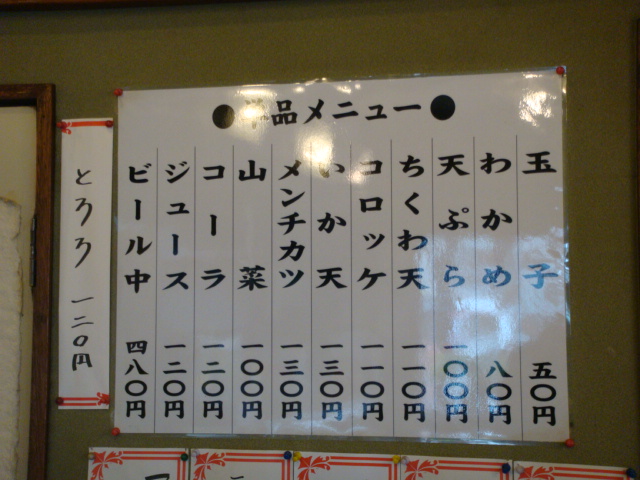 ●単品メニュー●
玉子 五〇円
わかめ 八〇円
天ぷら 一〇〇円
ちくわ天 一一〇円
コロッケ 一一〇円
いか天 一三〇円
メンチカツ 一三〇円
山菜 一〇〇円
コーラ 一二〇円
ジュース 一二〇円
ビール中 四八〇円
とろろ 一二〇円